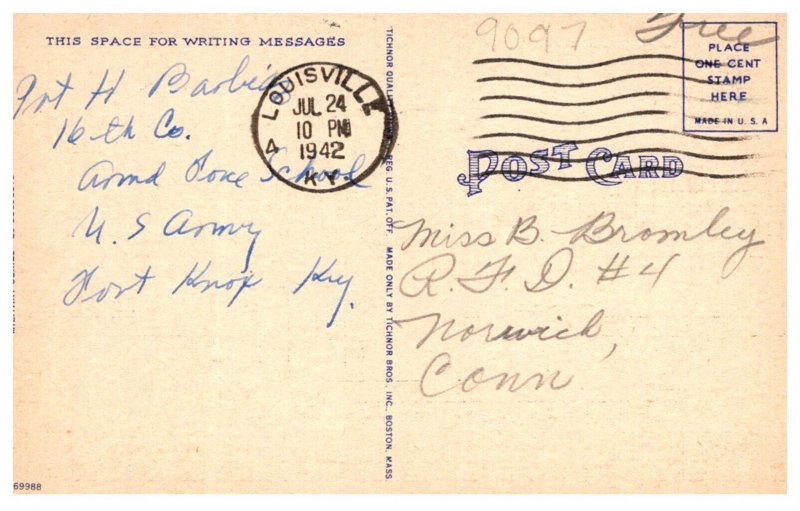 THIS SPACE FOR WRITING MESSAGES
Pvt H Barbie
16th Co.
Armd Force School
U. S Army
Fort Knox Ky.
LOUISVILLE
JUL 24
10 PM
1942
KY.
4
TICHNOR QUALITY REG. U.S. PAT. OFF. MADE ONLY BY TICHNOR BROS. INC., BOSTON, MASS.
9097
Free
PLACE
ONE CENT
STAMP
HERE
MADE IN U. S. A
POST CARD
Miss B. Bromley
R. F. D. #4
Norwich,
Conn
69988